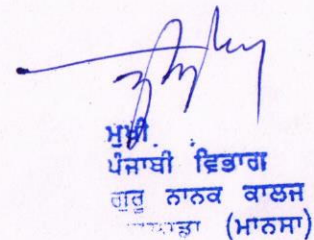 ਮੁਖੀ
ਪੰਜਾਬੀ ਵਿਭਾਗ
ਗੁਰੂ ਨਾਨਕ ਕਾਲਜ
(ਮਾਨਸਾ)